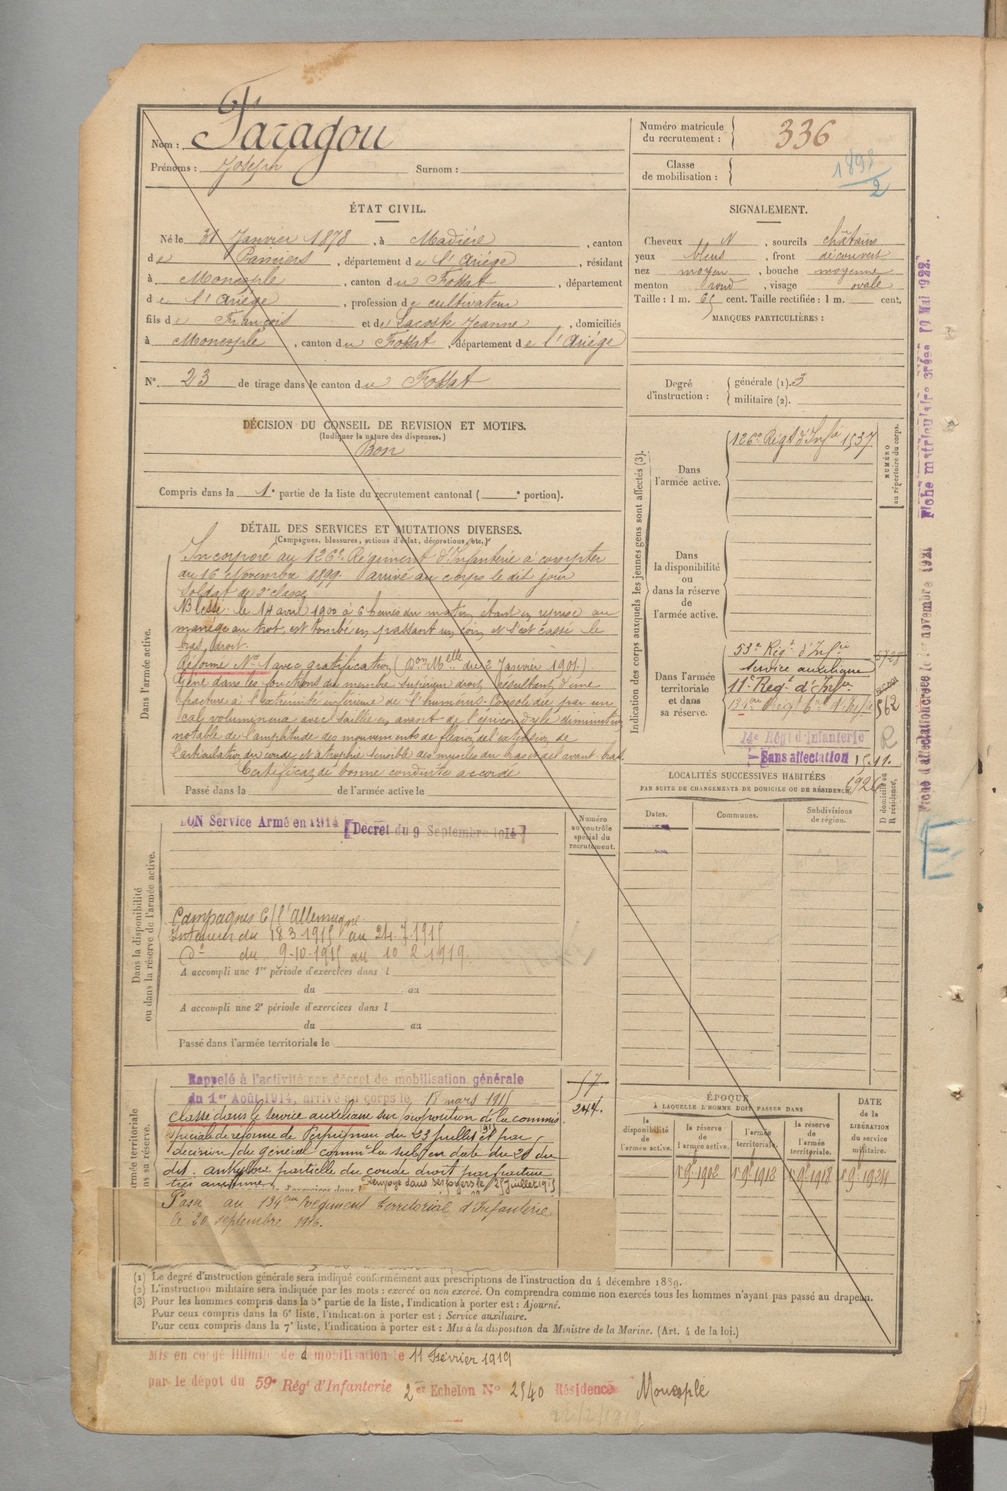 Nom : Faragou
Prénoms : Joseph Surnom :
Numéro matricule du recrutement : 336
Classe de mobilisation : 1898/2
ÉTAT CIVIL.
Né le 31 Janvier 1878, à Madière, canton
de Pamiers, département de l'Ariège, résidant
à Monesple, canton du Fossat, département
de l'Ariège, profession de cultivateur
fils de François et de Lacoste Jeanne, domiciliés
à Monesple, canton du Fossat, département de l'Ariège
N° 23 de tirage dans le canton du Fossat
SIGNALEMENT.
Cheveux N, sourcils châtains
yeux bleus, front découvert
nez moyen, bouche moyenne
menton rond, visage ovale
Taille : 1 m. 65 cent. Taille rectifiée : 1 m. cent.
MARQUES PARTICULIÈRES :
Degré d'instruction : générale (1). 3
militaire (2).
DÉCISION DU CONSEIL DE REVISION ET MOTIFS.
(Indiquer la nature des dispenses.)
Bon
Compris dans la 1e partie de la liste du recrutement cantonal ( e portion).
DÉTAIL DES SERVICES ET MUTATIONS DIVERSES.
(Campagnes, blessures, actions d'éclat, décorations, etc.)
Dans l'armée active.
Incorporé au 126e Régiment d'Infanterie à compter
du 16 Novembre 1899. arrivé au corps le dit jour
Soldat de 2e classe
Blessé le 14 avril 1900 à 6 heures du matin étant en reprise au
manège au trot, est tombé en passant un coin et s'est cassé le
bras droit.
Réformé No 1 avec gratification (Don Mlle du 2 Janvier 1901).
Gêne dans les fonctions du membre supérieur droit, résultant d'une
fracture à l'extrémité inférieure de l'humérus. Consolidée par un
cal volumineux avec saillie en avant de l'épicondyle diminution
notable de l'amplitude des mouvements de flexion et extension de
l'articulation du coude, et atrophie sensible des muscles du bras et de l'avant bras.
Certificat de bonne conduite accordé
Passé dans la de l'armée active le
Indication des corps auxquels les jeunes gens sont affectés (3).
NUMÉRO au répertoire du corps.
Dans l'armée active.
126e Régt d'Infie 1537
Dans la disponibilité ou dans la réserve de l'armée active.
Dans l'armée territoriale et dans sa réserve.
53e Régt d'Infie
Service auxiliaire
11e Regt d'Inf.
14e Régt d'Infanterie
Sans affectation
LOCALITÉS SUCCESSIVES HABITÉES
PAR SUITE DE CHANGEMENTS DE DOMICILE OU DE RÉSIDENCE.
Dates. Communes. Subdivisions de région. D domicile ou R résidence.
Dans la disponibilité ou dans la réserve de l'armée active.
BON Service Armé en 1914 [Décret du 9 Septembre 1914]
Numéro au contrôle spécial du recrutement.
Campagnes C/ l'Allemagne
Intérieur du 18 3 1915 au 24 7 1915
do du 9-10-1915 au 10 2 1919.
A accompli une 1re période d'exercices dans l
du au
A accompli une 2e période d'exercices dans l
du au
Passé dans l'armée territoriale le
Rappelé à l'activité par décret de mobilisation générale
du 1er Août 1914, arrivé au corps le 18 mars 1915
classé dans le service auxiliaire sur proposition de la commis
spéciale de réforme de Perpignan du 23 juillet 1915 par
décision du général comm la subd en date du 20 du
dit. ankylose partielle du coude droit par fracture
très ancienne. Renvoyé dans ses foyers le 25 Juillet 1915
Passé au 134eme Régiment territorial d'Infanterie
le 20 septembre 1916.
ÉPOQUE
À LAQUELLE L'HOMME DOIT PASSER DANS
la disponibilité de l'armée active. la réserve de l'armée active. l'armée territoriale. la réserve de l'armée territoriale.
DATE de la LIBÉRATION du service militaire.
1 9 1902 1 9 1918 1 9 1918 1 9 1924
(1) Le degré d'instruction générale sera indiqué conformément aux prescriptions de l'instruction du 4 décembre 1889.
(2) L'instruction militaire sera indiquée par les mots : exercé ou non exercé. On comprendra comme non exercés tous les hommes n'ayant pas passé au drapeau.
(3) Pour les hommes compris dans la 5e partie de la liste, l'indication à porter est : Ajourné.
Pour ceux compris dans la 6e liste, l'indication à porter est : Service auxiliaire.
Pour ceux compris dans la 7e liste, l'indication à porter est : Mis à la disposition du Ministre de la Marine. (Art. 4 de la loi.)
Mis en congé illimité de démobilisation le 11 Février 1919
par le dépôt du 59e Régt d'Infanterie 2er Echelon No 2540 Résidence Monesple
22/2/1919
Fiche d'affectation créée le novembre 1921
Fiche matriculaire créée 10 Mai 1922.